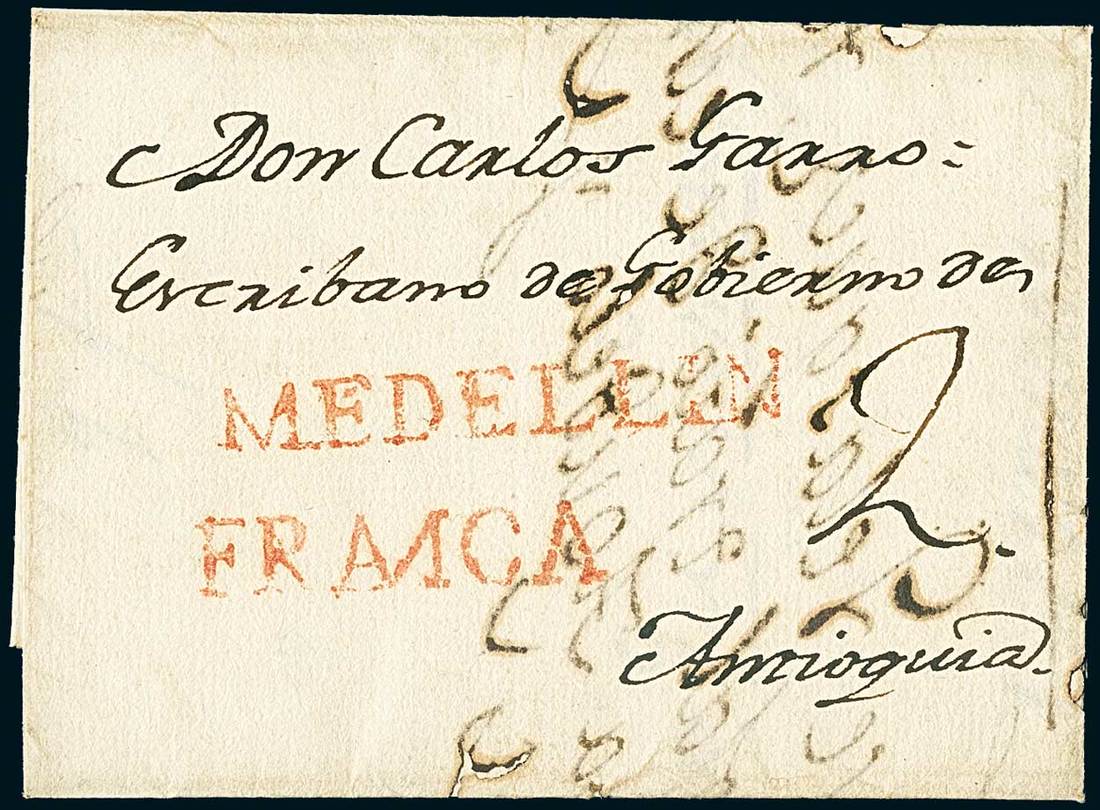 Don Carlos Garro=
Escribano de Gobierno de
MEDELLIN
2
FRANCA
Antioquia.